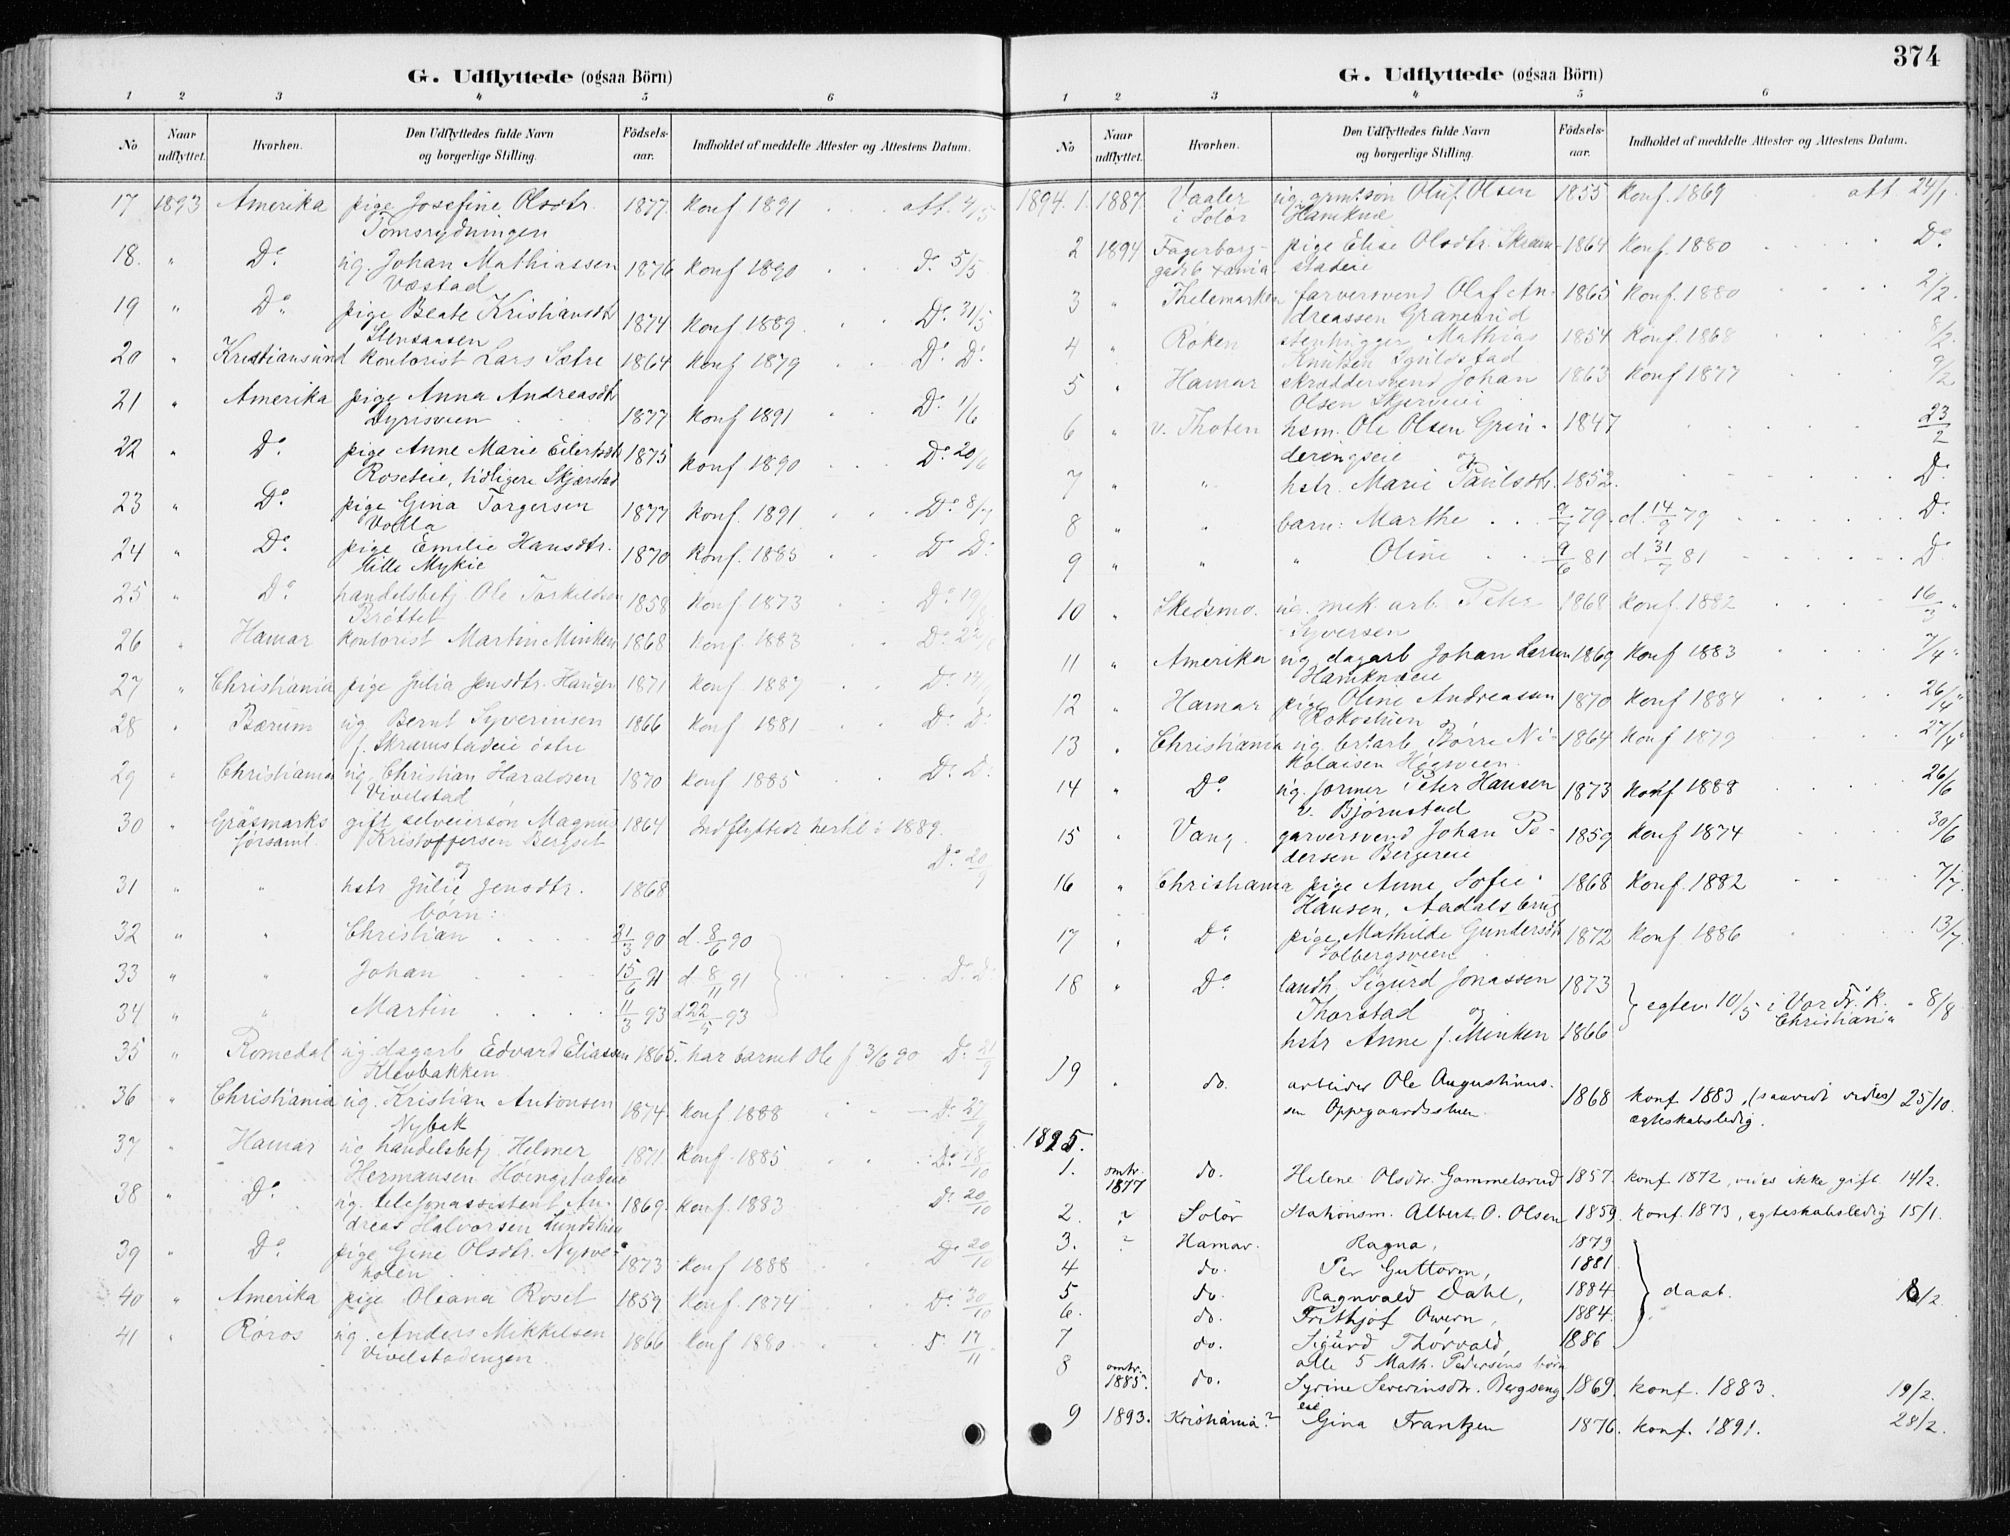 G. Udflyttede (ogsaa Börn)
1 2 3 4 5 6
No Naar udflyttet. Hvorhen. Den Udflyttedes fulde Navn og borgerlige Stilling. Födsels-aar. Indholdet af meddelte Attester og Attestens Datum.
17 1893 Amerika pige Josefine Olsdtr. 1877 konf 1891 . . . att. 4/5
Tomsrydningen
18. " Do. ug. Johan Mathiassen 1876 konf 1890 . . . Do. 5/5
Væstad
19 " Do. pige Beate Kristiansdtr 1874 konf 1889 . . Do. 31/5
Stensaasen
20 " Kristiansund kontorist Lars Sætre 1864 konf 1879 . . . Do. Do.
21 " Amerika pige Anna Andreasdtr
Dyrisveen . . . 1877 konf 1891 . . Do. 1/6
22 " Do. pige Anne Marie Eilertsdtr 1875 konf 1890 . . . Do. 20/6
Roseteie, tidligere Skjærstad
23 " Do. pige Gina Torgersen 1877 konf. 1891 . . . Do. 8/7
Volla
24 " Do. pige Emilie Hansdtr. 1870 konf. 1885 . . Do. Do.
Lille Mykie
25 " Do. handelsbetj Ole Torkildsen 1858 konf 1873 . . Do. 19/8
Brøttet
26 " Hamar kontorist Martin Minken 1868 konf. 1883
27 " Christiania pige Julia Jensdtr. Haugen 1871 konf. 1887
28 " Bærum ug Bernt Syverinsen 1866 konf 1881 . . Do. Do.
f. Skramstadeie östre
29 " Christiania ug. Christian Haraldsen 1870 konf 1885 . . Do. Do.
Vivelstad
30 " Gräsmarks gift selveiersøn Magnus 1864 Indflyttede hertil i 1889.
församl. Kristoffersen Bergset
og Do. 20/9
31 " " hstr Julie Jensdtr. 1868
børn:
32 " " Christian . . . . 21/3 90 d. 8/6 90
33 " " Johan . . . . 15/6 91 d 8/11 91 . . Do. Do.
34 " " Martin . . . . 11/3 93 d 22/5 93
35 " Romedal ug dagarb Edvard Eliassen 1865. har barnet Ole f 3/6 90 Do. 21/9
Klevbakken
36 " Christiania ug. Kristian Antonsen 1874. konf 1888 . . Do. 27/9
Nybak
37 " Hamar ug handelsbetj. Helmer 1871 konf. 1885 . . Do. 18/10
Hermansen
38 " Do. ug. telefonassistent An- 1869. konf. 1883 . . Do. 20/10
dreas Halvorsen Lundstuen
39 " Do. pige Gine Olsdtr. Nysve- 1873 konf 1888 . . Do 20/10
holen
40 " Amerika pige Oleana Roset 1859 konf 1874 . . Do. 30/10
41 " Røros ug. Anders Mikkelsen 1866 konf 1880 . . 17/11
Vivelstadengen
374
G. Udflyttede (ogsaa Börn)
1 2 3 4 5 6
No Naar udflyttet. Hvorhen. Den Udflyttedes fulde Navn og borgerlige Stilling. Födsels-aar. Indholdet af meddelte Attester og Attestens Datum.
1894. 1. 1887. Vaaler ug. grmtsøn Oluf Olsen 1855 konf. 1869 att 24/1.
i Solør Hamknæ
2 1894 Fagerborg- pige Elise Olsdtr. Skram- 1864 konf. 1880 . . . . Do.
stadeie
3 " Thelemarken farversvend Olaf An- 1865 konf. 1880 . . . . 2/2.
dreassen Granerud
4 " Röken stenhugger Mathias 1854 konf. 1868 . . . 8/2.
Knutsen
5 " Hamar skræddersvend Johan 1863 konf 1877 . . . 9/2
Olsen Skjerveie
6 " v. Thoten hsm. Ole Olsen Grin- 1847 . . . . 23/2
derengseie og
7 " " hstr. Marie Paulsdtr. 1852. . . . Do.
8 " " barn: Marthe . . . 9/7 79. d. 14/9 79 . . . . Do.
9 " " " Oline . . 9/6 81 d 31/7 81 . . . . Do
10 " Skedsmo. ug. mek. arb. Peter 1868 konf. 1882 . . . . 16/3 "
Syversen
11 " Amerika ug. dagarb Johan Larsen 1869 konf 1883 . . . . 7/4 "
Hamknæeie
12 " Hamar pige Oline Andreassen 1870 konf 1884 . . . 26/4 "
Rokostuen
13 " Christiania ug. Børre Ni- 1864 konf 1879 . . . 27/4 "
kolaisen Høgsveen
14 " Do ug. former Peter Hansen 1873 konf 1888 . . . 26/6
v. Bjørnstad
15 " Vang. garversvend Johan Pe- 1859 konf 1874 . . . 30/6
dersen Bergereie
16 " Christiania pige Anne Sofie 1868 konf. 1882 . . . 7/7.
Hansen, Aadalsbrug
17 " Do. pige Mathilde Gundersdtr 1872 konf 1886 . . . 13/7.
Solbergsveen
18 " Do. landh. Sigurd Jonassen 1873
Thorstad og egtev. 10/5 i Vor Fr. K. " 8/8
Christiania
hstr Anne f. Minken 1866
19 " do. arbeider Ole Augustinus-
sen Oppegaardsstuen. 1868 konf. 1883, (saavidt vides) 25/10.
egteskabsledig.
1895.
1. omtr. 1877 do. Helene Olsdtr. Gammelsrud 1857. konf 1872, vides ikke gift 14/2.
2. ? Solør Stationsm. Albert O. Olsen 1859. konf. 1873, egteskabsledig 15/1.
3. ? Hamar. Ragna, 1879
4 do. Per Guttorm, 1881
5 do. Ragnvald Dahl, 1884 daab. 8/2.
6. do. Frithjof Owren, 1884.
7 do. Sigurd Thorvald, 1886
alle 5 Math. Pedersens børn
8 omtr. 1885. do. Syrine Severinsdtr. Bergseng- 1869. konf. 1883. 19/2.
eie
9 1893. Kristiania? Gina Frantzen 1876. konf. 1891. 28/2.